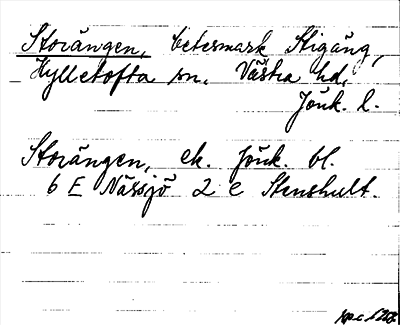 Storängen, betesmark Stigäng,
Hylletofta sn. Västra hd,
Jönk. l.
Storängen, ek. Jönk. bl.
6 E Nässjö 2 e Stenshult.